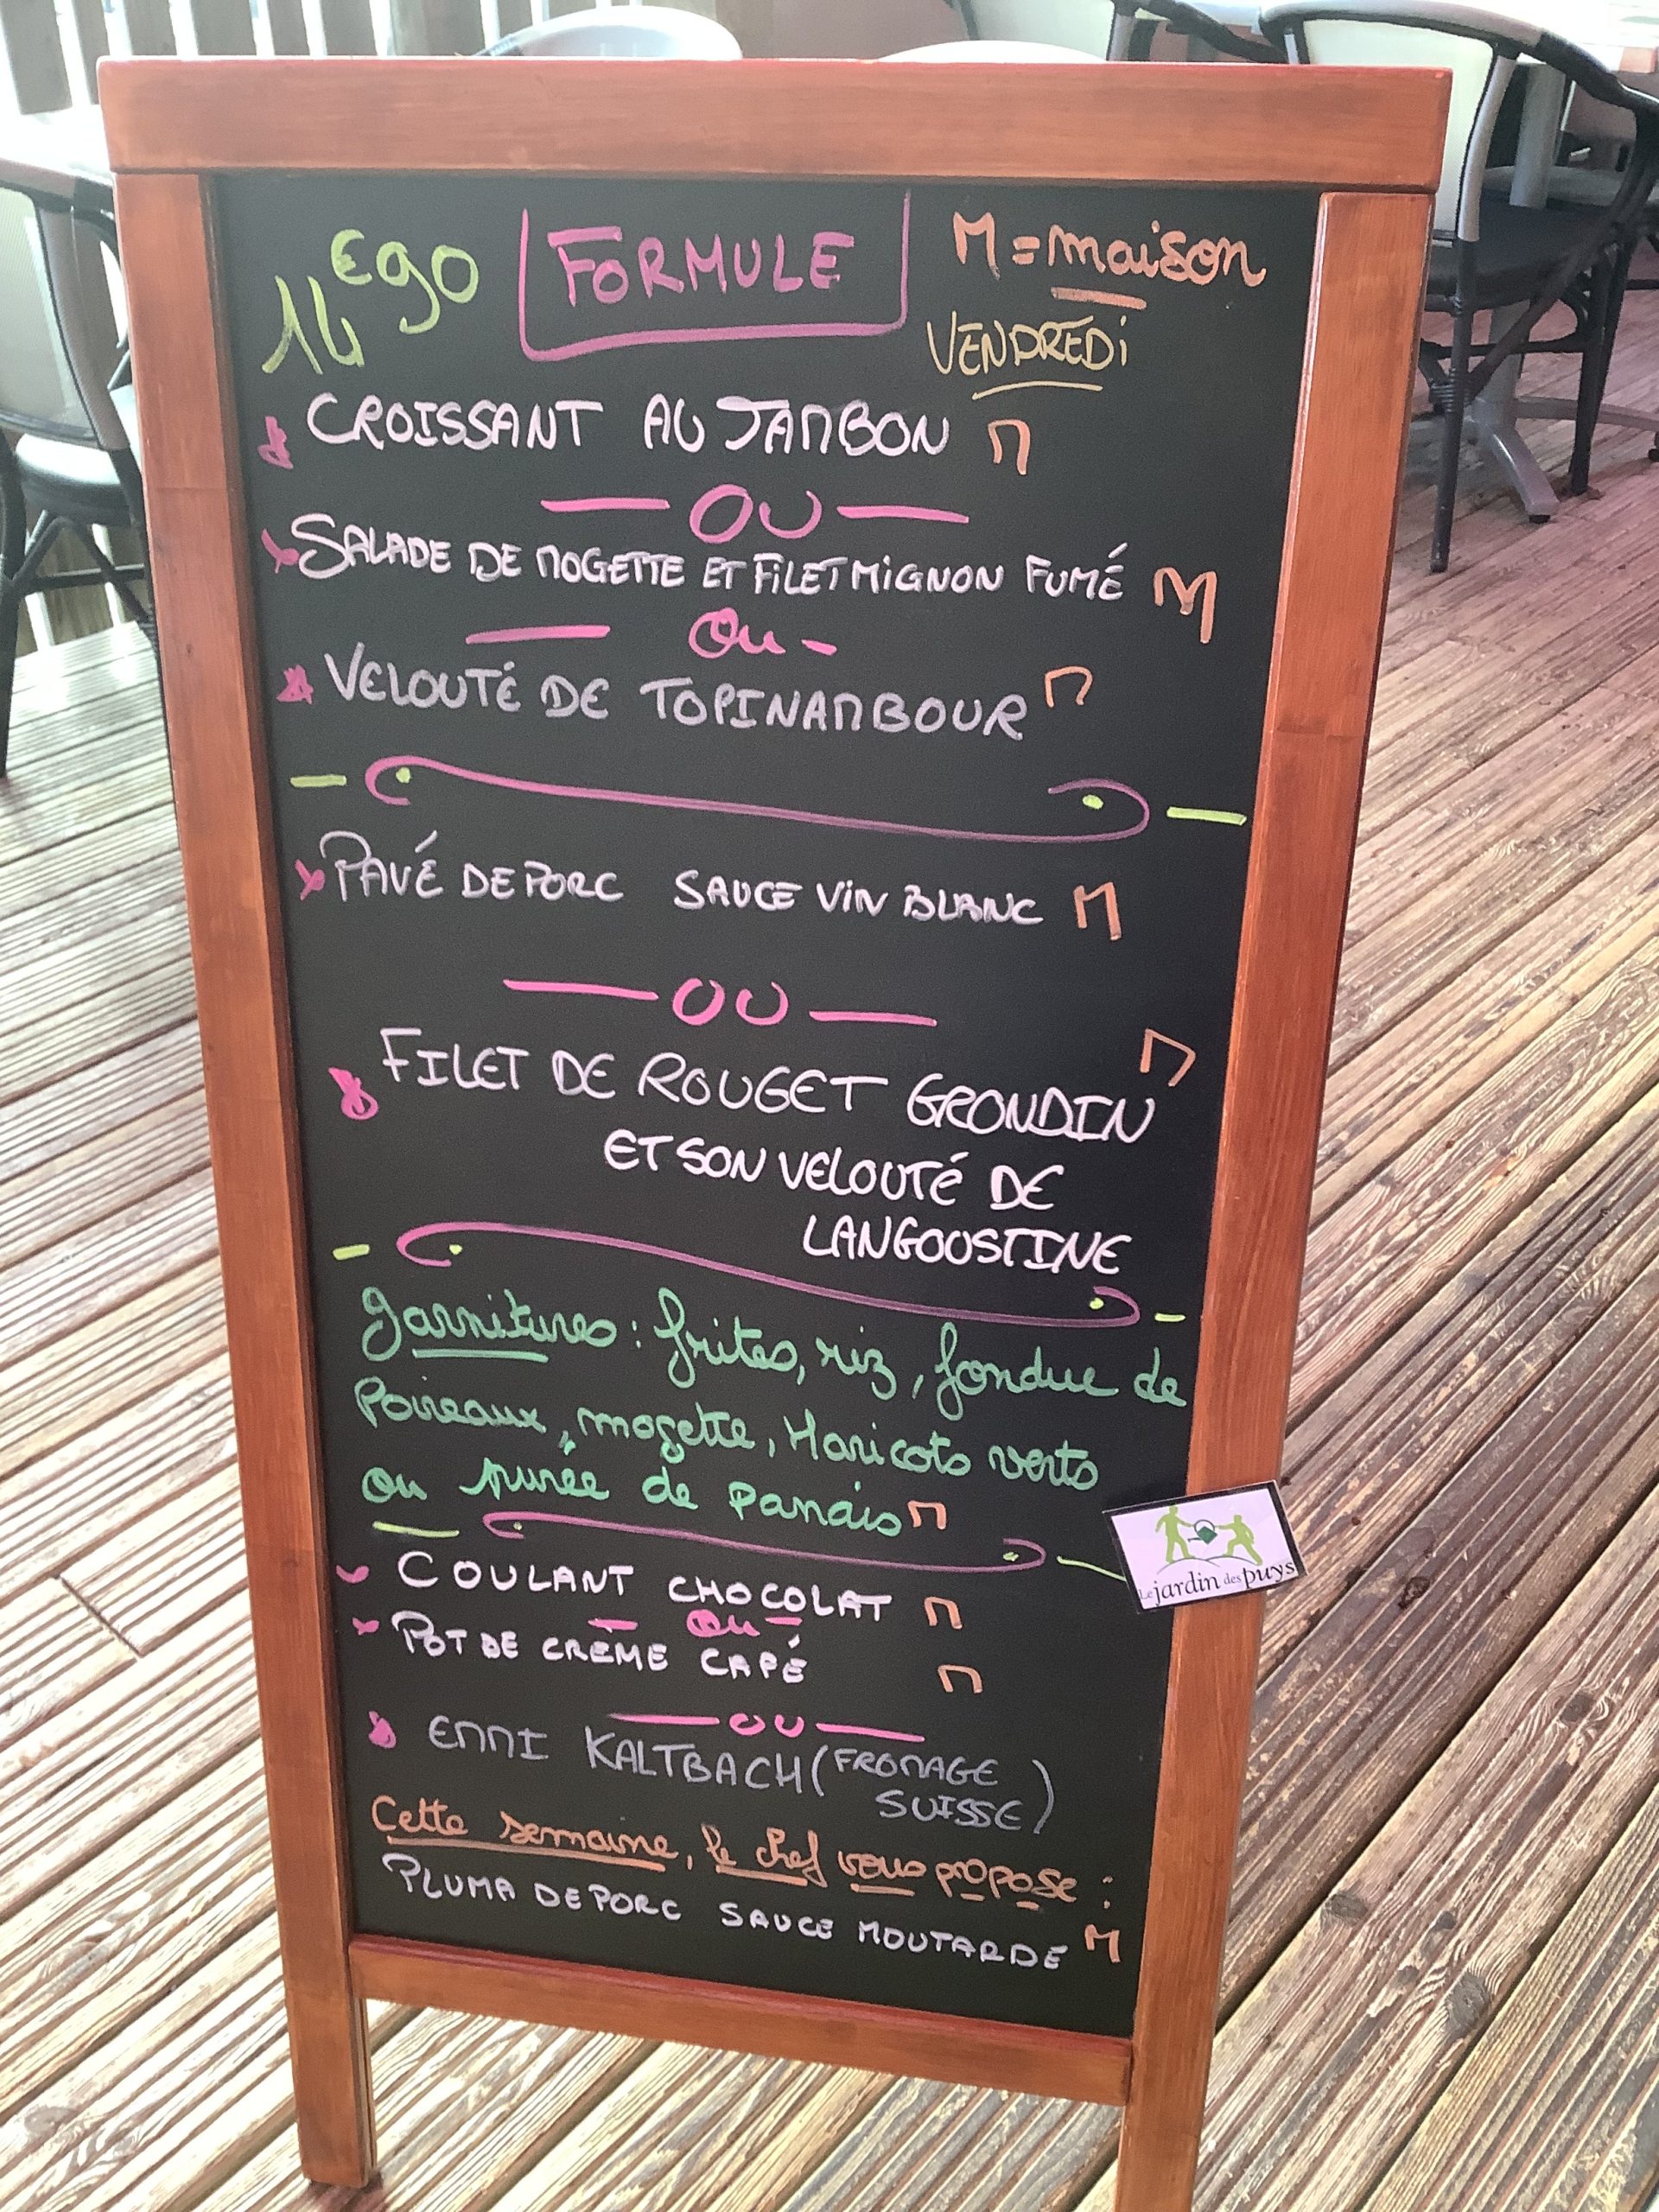 14€90 FORMULE M = maison
VENDREDi
CROISSANT AU JAMBON M
OU
SALADE DE MOGETTE ET FiLET MiGNON FUMÉ M
Ou
VELOUTÉ DE TOPINAMBOUR M
PAVÉ DE PORC SAUCE ViN BLANC M
OU
FILET DE ROUGET GRONDIN M
ET SON VELOUTÉ DE
LANGOUSTINE
garnitures : frites, riz, fondue de
Poireaux, mogette, Haricots verts
ou purée de panais M
COULANT CHOCOLAT M
ou
POT DE CRÈME CAFÉ M
OU
EMMI KALTBACH (FROMAGE
SUISSE)
Cette semaine, le chef vous propose :
PLUMA DE PORC SAUCE MOUTARDE M
Le jardin des puys